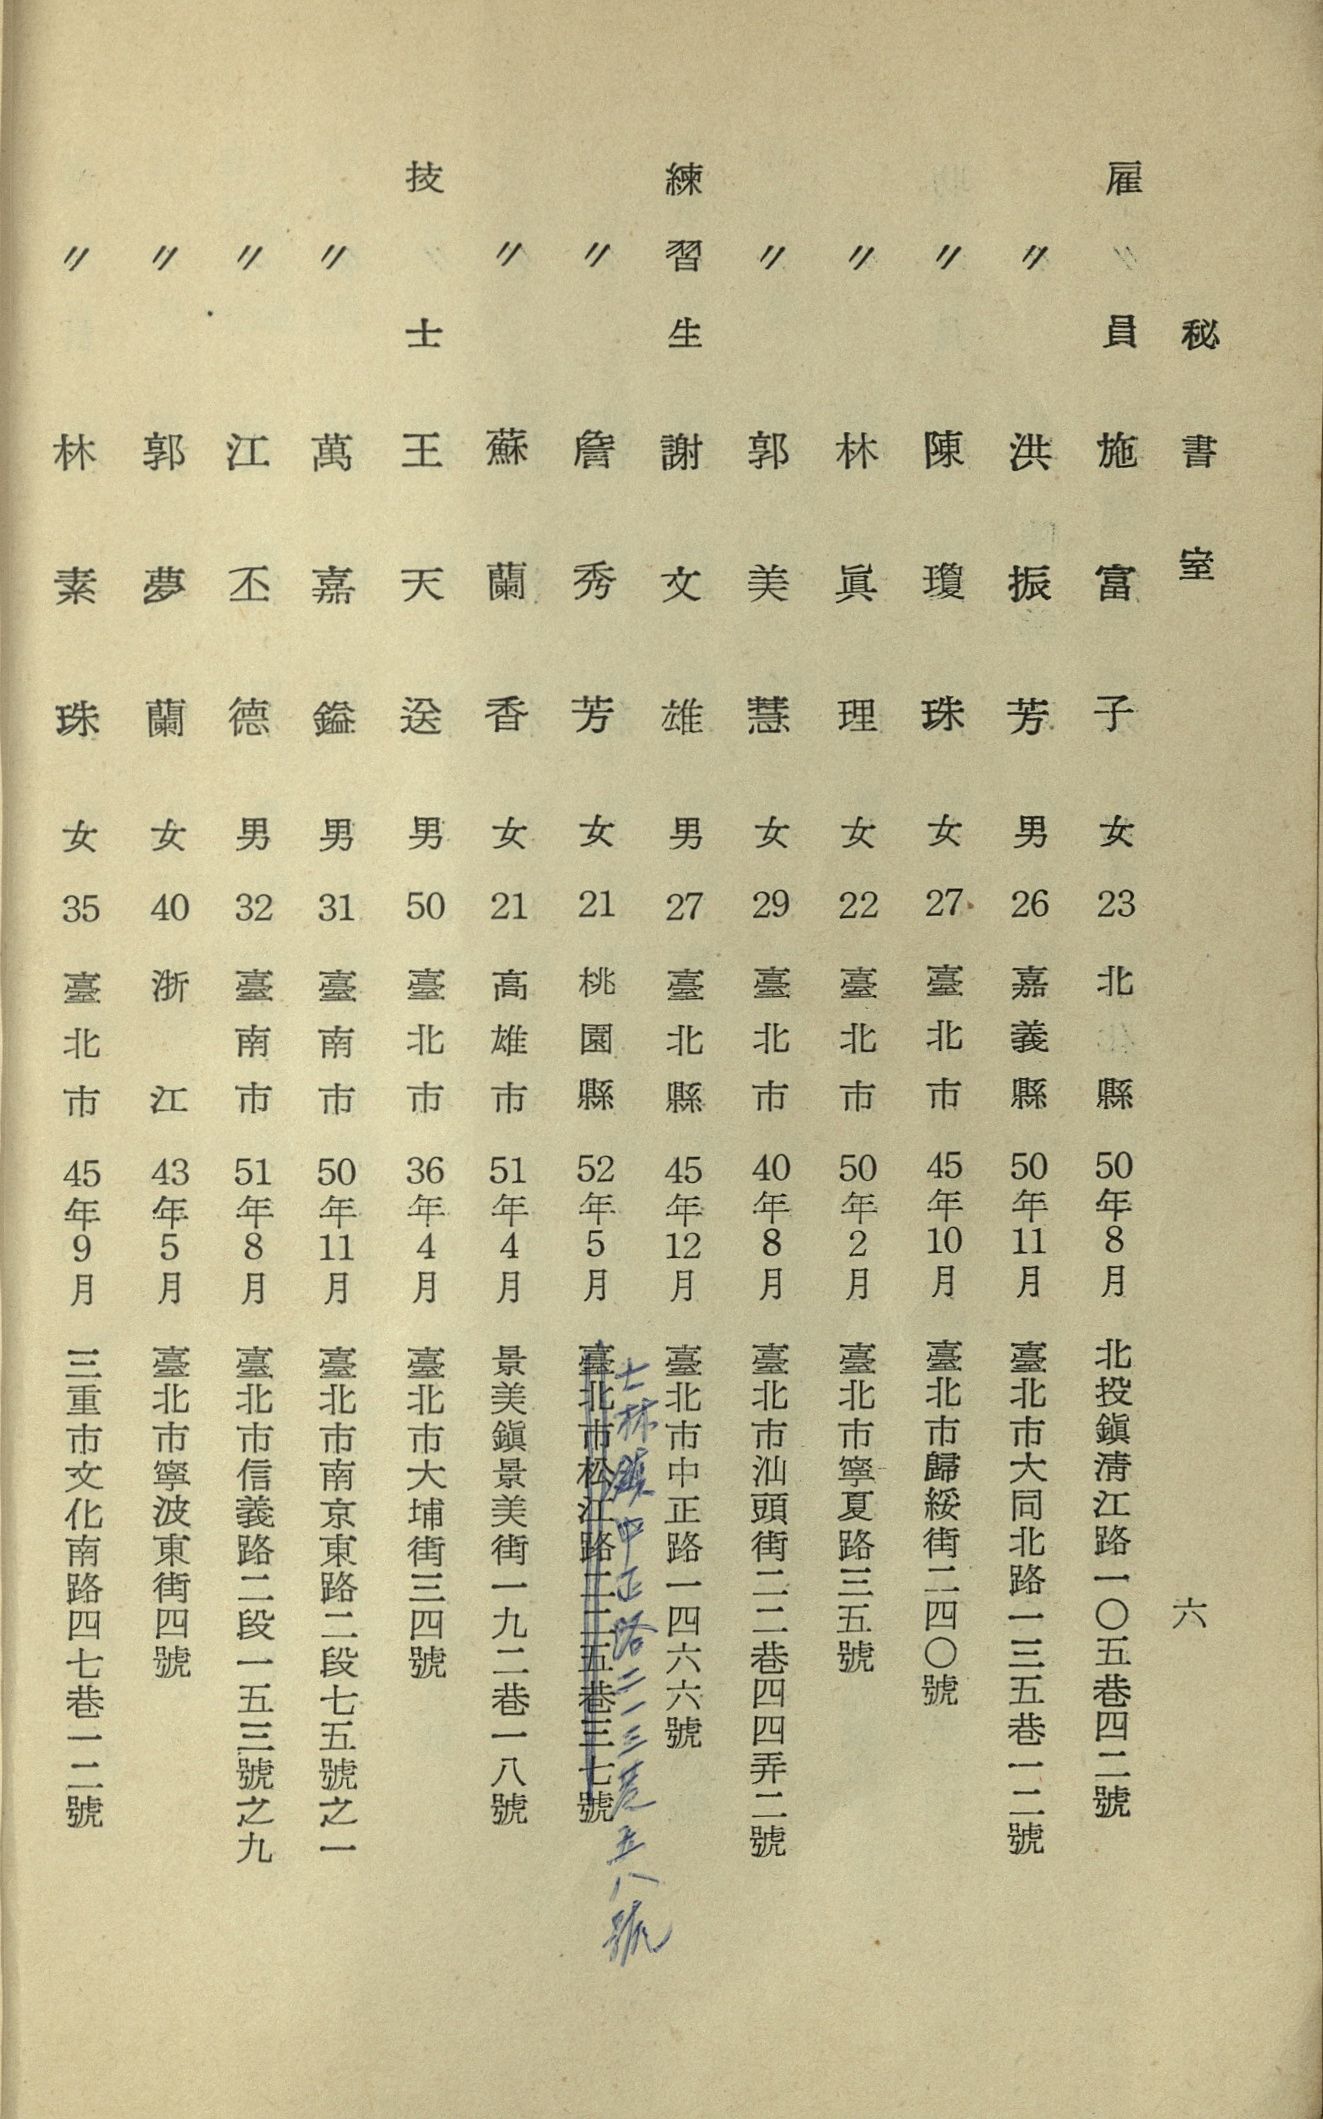 秘書室 六
雇員 施富子 女 23 北縣 50年8月 北投鎮淸江路一〇五巷四二號
〃 洪振芳 男 26 嘉義縣 50年11月 臺北市大同北路一三五巷一二號
〃 陳瓊珠 女 27 臺北市 45年10月 臺北市歸綏街二四〇號
〃 林眞理 女 22 臺北市 50年2月 臺北市寧夏路三五號
〃 郭美慧 女 29 臺北市 40年8月 臺北市汕頭街二二巷四四弄二號
練習生 謝文雄 男 27 臺北縣 45年12月 臺北市中正路一四六六號
士林鎮中正路二一三巷五八號
〃 詹秀芳 女 21 桃園縣 52年5月 臺北市松江路二二五巷三七號
〃 蘇蘭香 女 21 高雄市 51年4月 景美鎮景美街一九二巷一八號
技士 王天送 男 50 臺北市 36年4月 臺北市大埔街三四號
〃 萬嘉鎰 男 31 臺南市 50年11月 臺北市南京東路二段七五號之一
〃 江丕德 男 32 臺南市 51年8月 臺北市信義路二段一五三號之九
〃 郭夢蘭 女 40 浙江 43年5月 臺北市寧波東街四號
〃 林素珠 女 35 臺北市 45年9月 三重市文化南路四七巷一二號